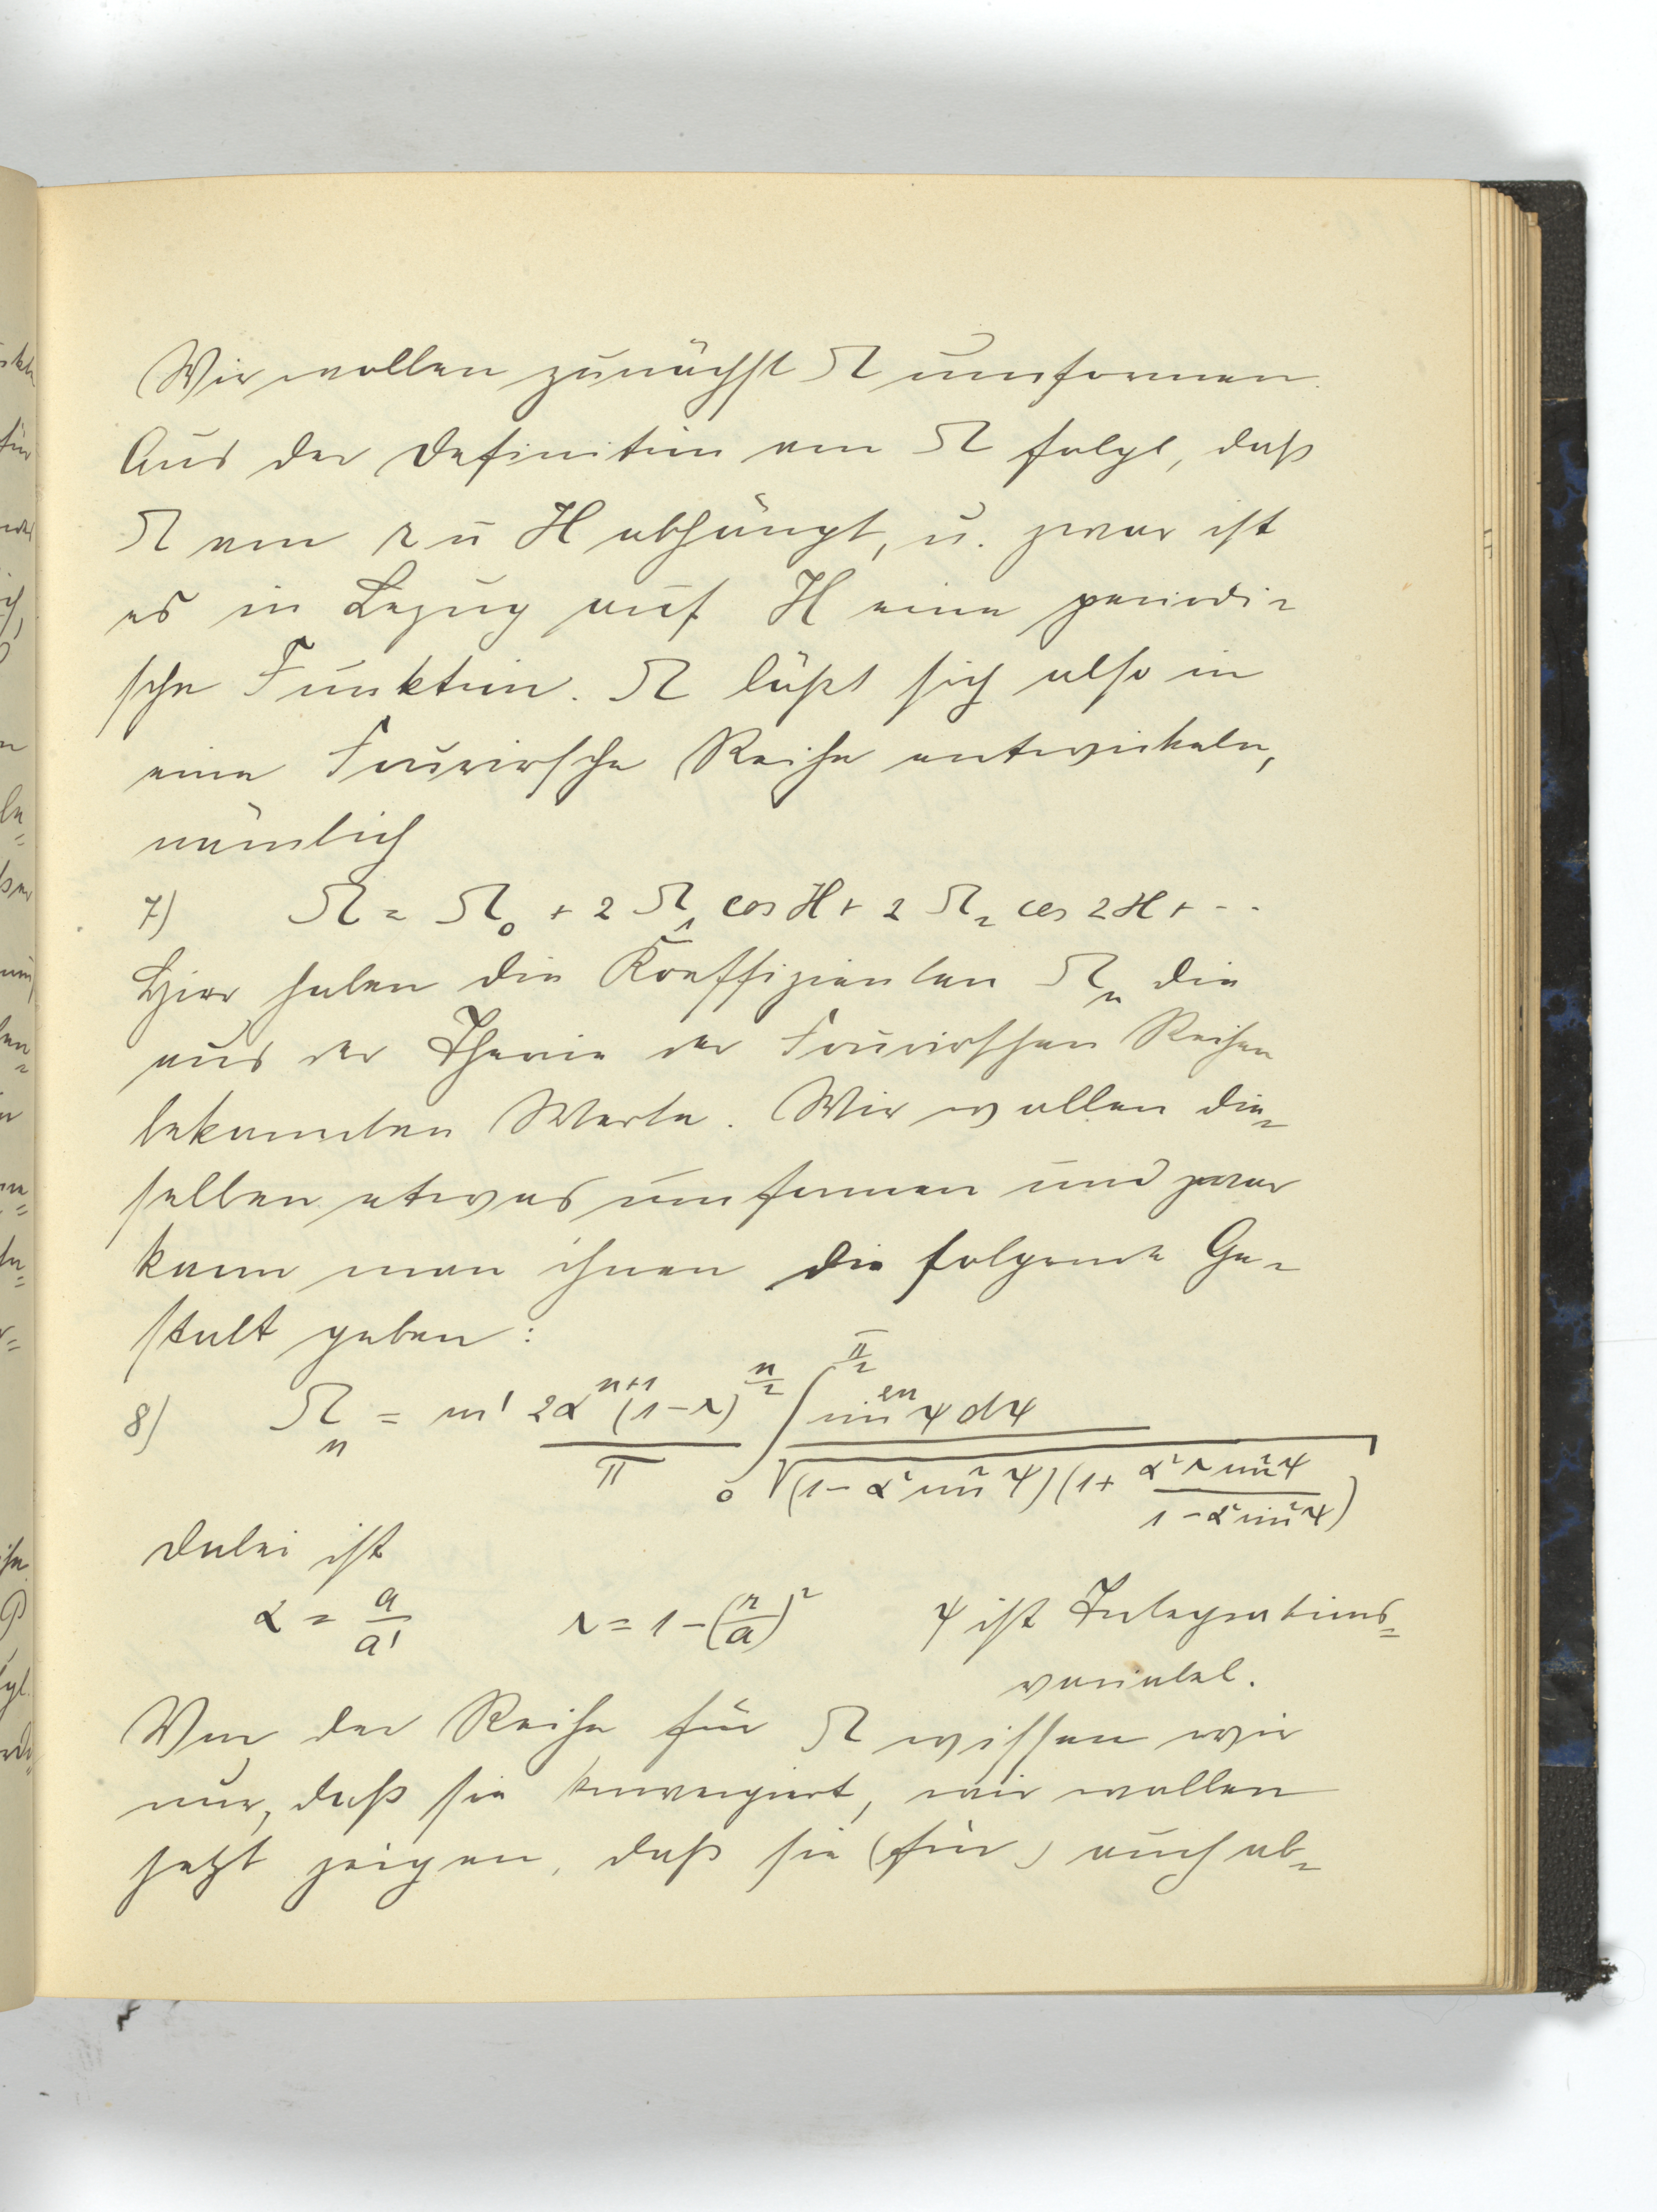 Wir wollen zunächst Ω umformen.
Aus der Definition von Ω folgt, daß
Ω von r u H abhängt, u. zwar ist
es in Bezug auf H eine periodi-
sche Funktion. Ω läßt sich also in
eine Fouriersche Reihe entwickeln,
nämlich
7) Ω = Ω₀ + 2 Ω₁ cos H + 2 Ω₂ cos 2H + ...
Hier haben die Koeffizienten Ωₙ die
aus der Theorie der Fourierschen Reihen
bekannten Werte. Wir wollen die-
selben etwas umformen und zwar
kann man ihnen die folgende Ge-
stalt geben:
8) Ωₙ = m' 2α^{n+1}(1-r)^{n/2} / π ∫₀^{π/2} sin^{2n} ψ dψ / √((1-α² sin² ψ)(1 + α² r sin² ψ / (1-α² sin² ψ)))
Dabei ist
α = a/a' r = 1-(r/a)² ψ ist Integrations-
variabel.
Von der Reihe für Ω wissen wir
nur, daß sie konvergiert, wir wollen
jetzt zeigen, daß sie (für) auch ab-